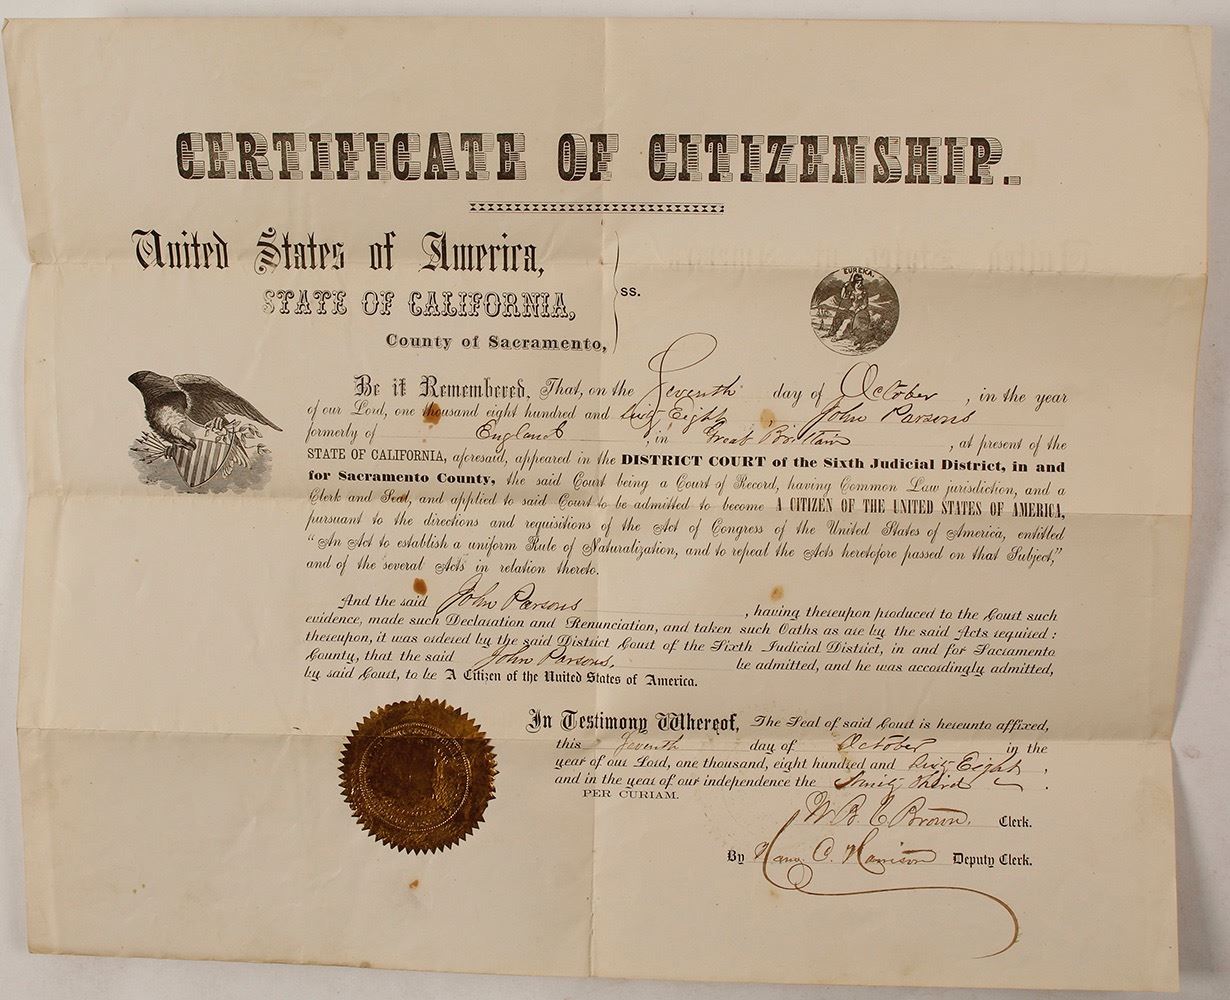 CERTIFICATE OF CITIZENSHIP.
United States of America,
STATE OF CALIFORNIA,
County of Sacramento,
ss.
EUREKA.
Be it Remembered, That, on the Seventh day of October, in the year
of our Lord, one thousand eight hundred and Sixty Eight, John Parsons
formerly of England, in Great Brittain, at present of the
STATE OF CALIFORNIA, aforesaid, appeared in the DISTRICT COURT of the Sixth Judicial District, in and
for Sacramento County, the said Court being a Court of Record, having Common Law jurisdiction, and a
Clerk and Seal, and applied to said Court to be admitted to become A CITIZEN OF THE UNITED STATES OF AMERICA,
pursuant to the directions and requisitions of the Act of Congress of the United States of America, entitled
"An Act to establish a uniform Rule of Naturalization, and to repeal the Acts heretofore passed on that Subject,"
and of the several Acts in relation thereto.
And the said John Parsons, having thereupon produced to the Court such
evidence, made such Declaration and Renunciation, and taken such Oaths as are by the said Acts required:
thereupon, it was ordered by the said District Court of the Sixth Judicial District, in and for Sacramento
County, that the said John Parsons, be admitted, and he was accordingly admitted,
by said Court, to be A Citizen of the United States of America.
In Testimony Whereof, The Seal of said Court is hereunto affixed,
this Seventh day of October in the
year of our Lord, one thousand, eight hundred and Sixty Eight,
and in the year of our independence the Ninety Third.
PER CURIAM.
W B C Brown, Clerk.
By C. Harrison Deputy Clerk.